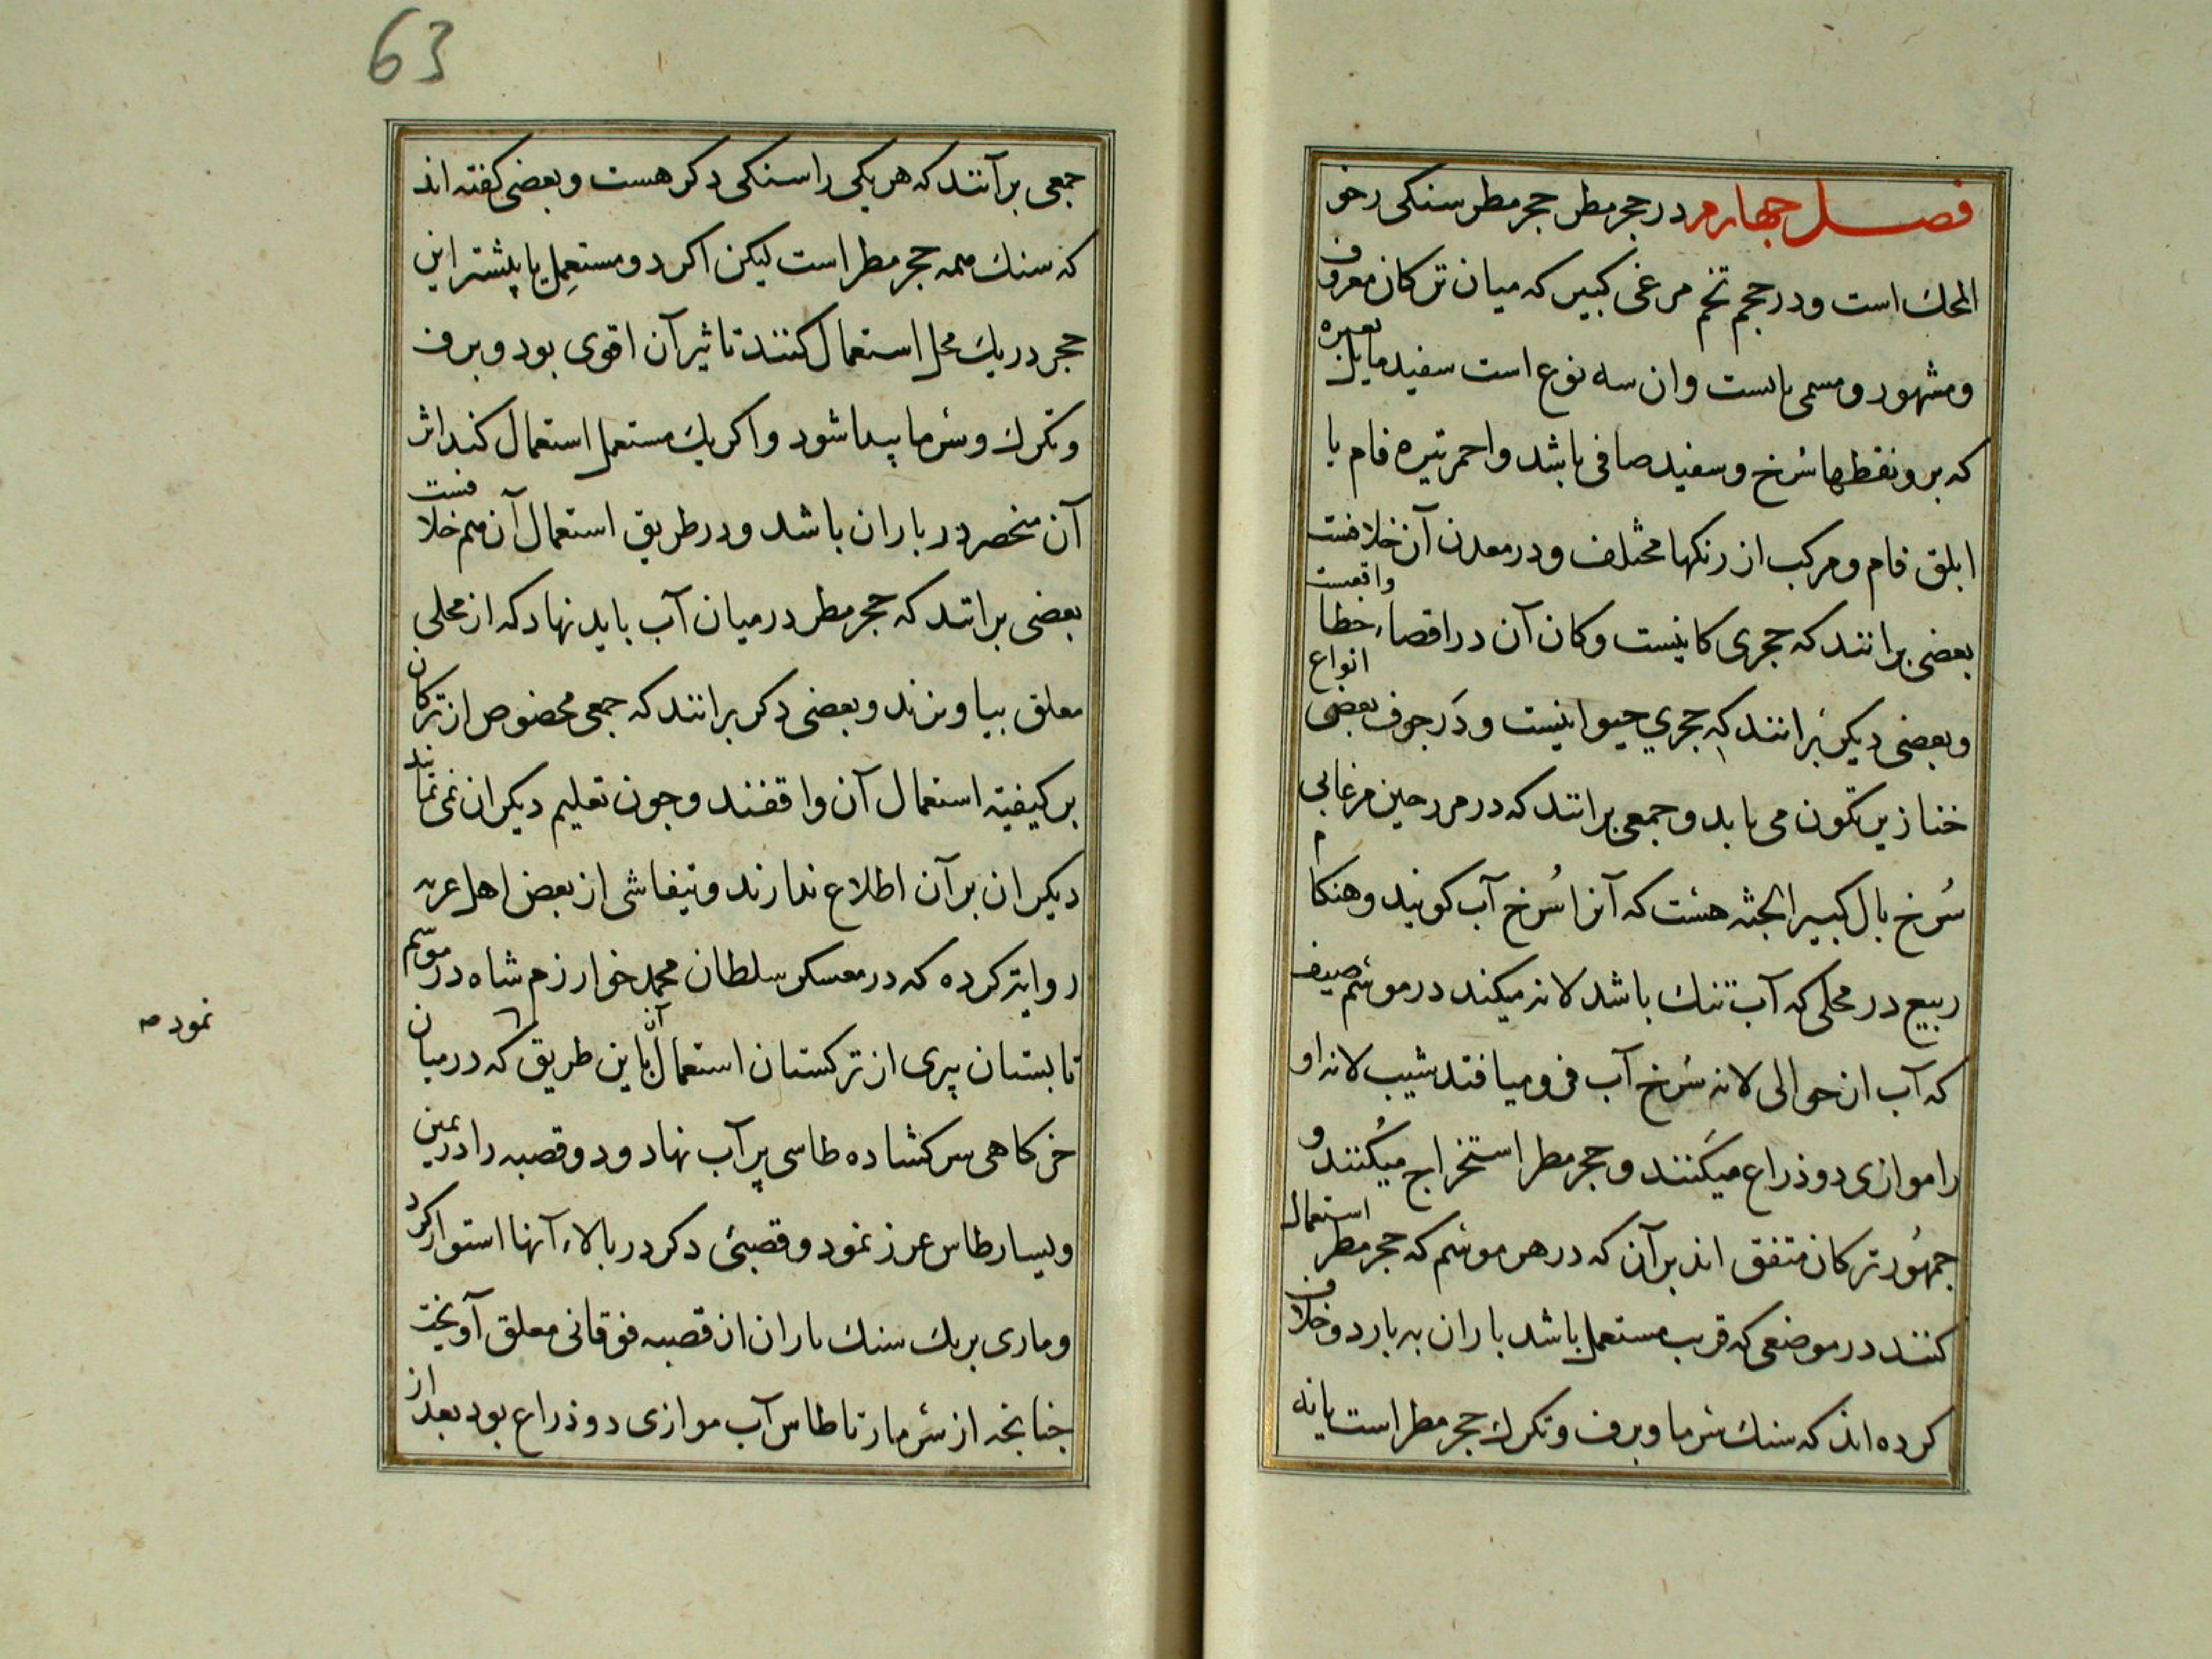 فصل چهارم در حجر مطر حجر مطر سنکی رخو
المحک است ودر حجم تخم مرغی کبیر که میان ترکان معروف
ومشهور ومسمی باست وان سه نوع است سفید مایل بغبره
که برو نقطها سُرخ وسفید صافی باشد واحمر تیره فام یا
ابلق فام ومرکب از رنکها مختلف ودر معدن آن خلافست
بعضی برانند که حجری کانیست وکان آن در اقصاء خطا واقعست
وبعضی دیکر برانند که حجری حیوانیست ودر جوف بعضی انواع
خنازیر تکون می یابد وجمعی برانند که در مرحین مرغابی
سُرخ بال کبیر الجثه هست که آنرا سُرخ آب کویند وهنکام
ربیع در محلی که آب تنک باشد لانه میکند در موسم صیف
که آب از حوالی لانه سُرخ آب فرو میافتد شیب لانه او
را موازی دو ذراع میکَنند وحجر مطر استخراج میکُنند و
جمهُور ترکان متفق اند بر آن که در هر موسم که حجر مطر استعمال
کنند در موضعی که قریب مستعمل باشد باران به بارد وخلاف
کرده اند که سنک سرما وبرف وتکرک حجر مطر است یا نه
63
جمعی بر آنند که هر یکی را سنکی دکر هست وبعضی کفته اند
که سنک همه حجر مطر است لیکن اکر دو مستعمِل یا بیشتر این
حجر در یک محل استعمال کنند تاثیر آن اقوی بود وبرف
وتکرک وسَرما پیدا شود واکر یک مستعمل استعمال کند اثر
آن منحصر در باران باشد ودر طریق استعمال آن هم خلافست
بعضی برانند که حجر مطر در میان آب باید نهاد که از محلی
معلق بیاویزند وبعضی دکر برانند که جمعی مخصوص از ترکان
بر کیفیته استعمال آن واقفند وجون تعلیم دیکران نمی نمایند
دیکران بر آن اطلاع ندارند وتیفاشی از بعض اهل غزنه
روایة کرده که در معسکر سلطان محمد خوارزم شاه در موسم
تابستان پیری از ترکستان استعمال آن باین طریق که در میان
نمود صه
خرکاهی سر کشاده طاسی پر آب نهاد ودو قصبه را در یمین
ویسار طاس غرز نمود وقصبئی دکر در بالاء آنها استوار کرد
وماری بریک سنک باران از قصبه فوقانی معلق آویخت
جنانجه از سَر مار تا طاس آب موازی دو ذراع بود بعد از